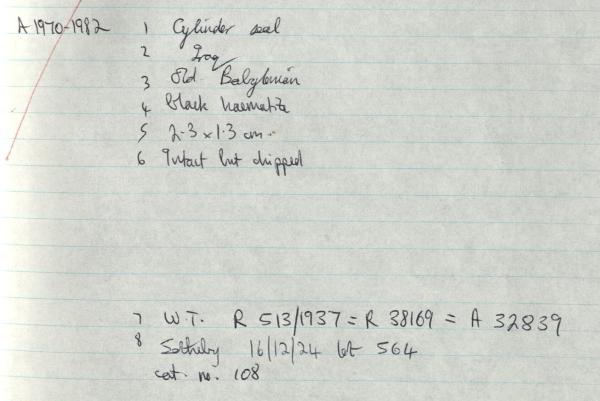 A 1970-1982 1 Cylinder seal
2 Iraq
3 Old Babylonian
4 black haematite
5 2.3 x 1.3 cm.
6 Intact but chipped
7 W.T. R 513/1937 = R 38169 = A 32839
8 Sotheby 16/12/24 lot 564
cat. no. 108